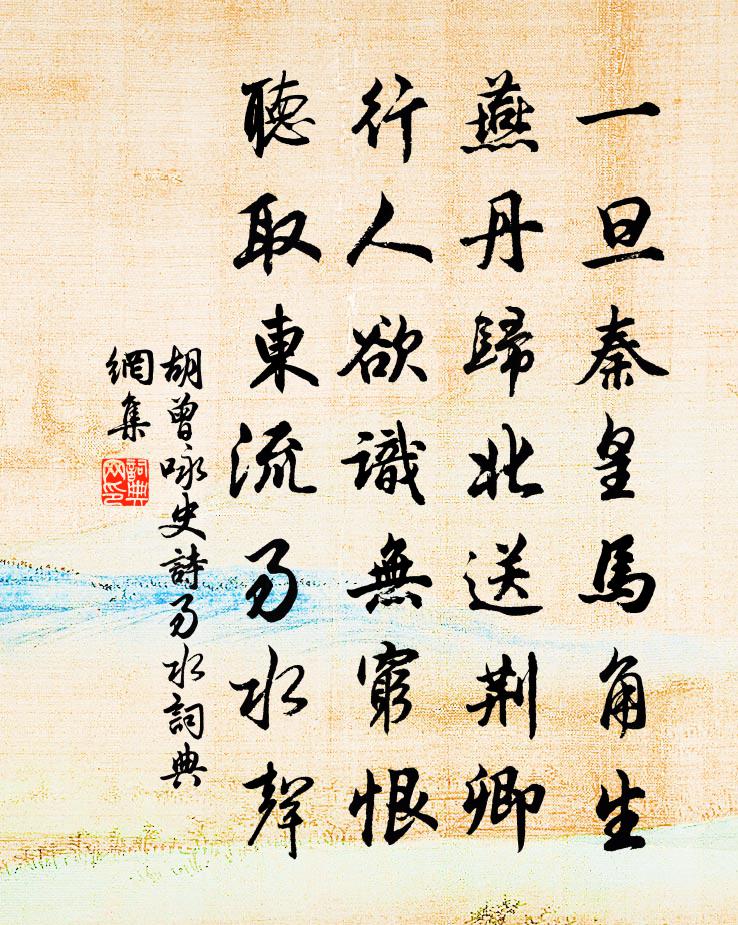 一旦秦皇馬角生
燕丹歸北送荆卿
行人欲識無窮恨
聽取東流易水聲
胡曾咏史詩易水詞典
網集
詞典
网印